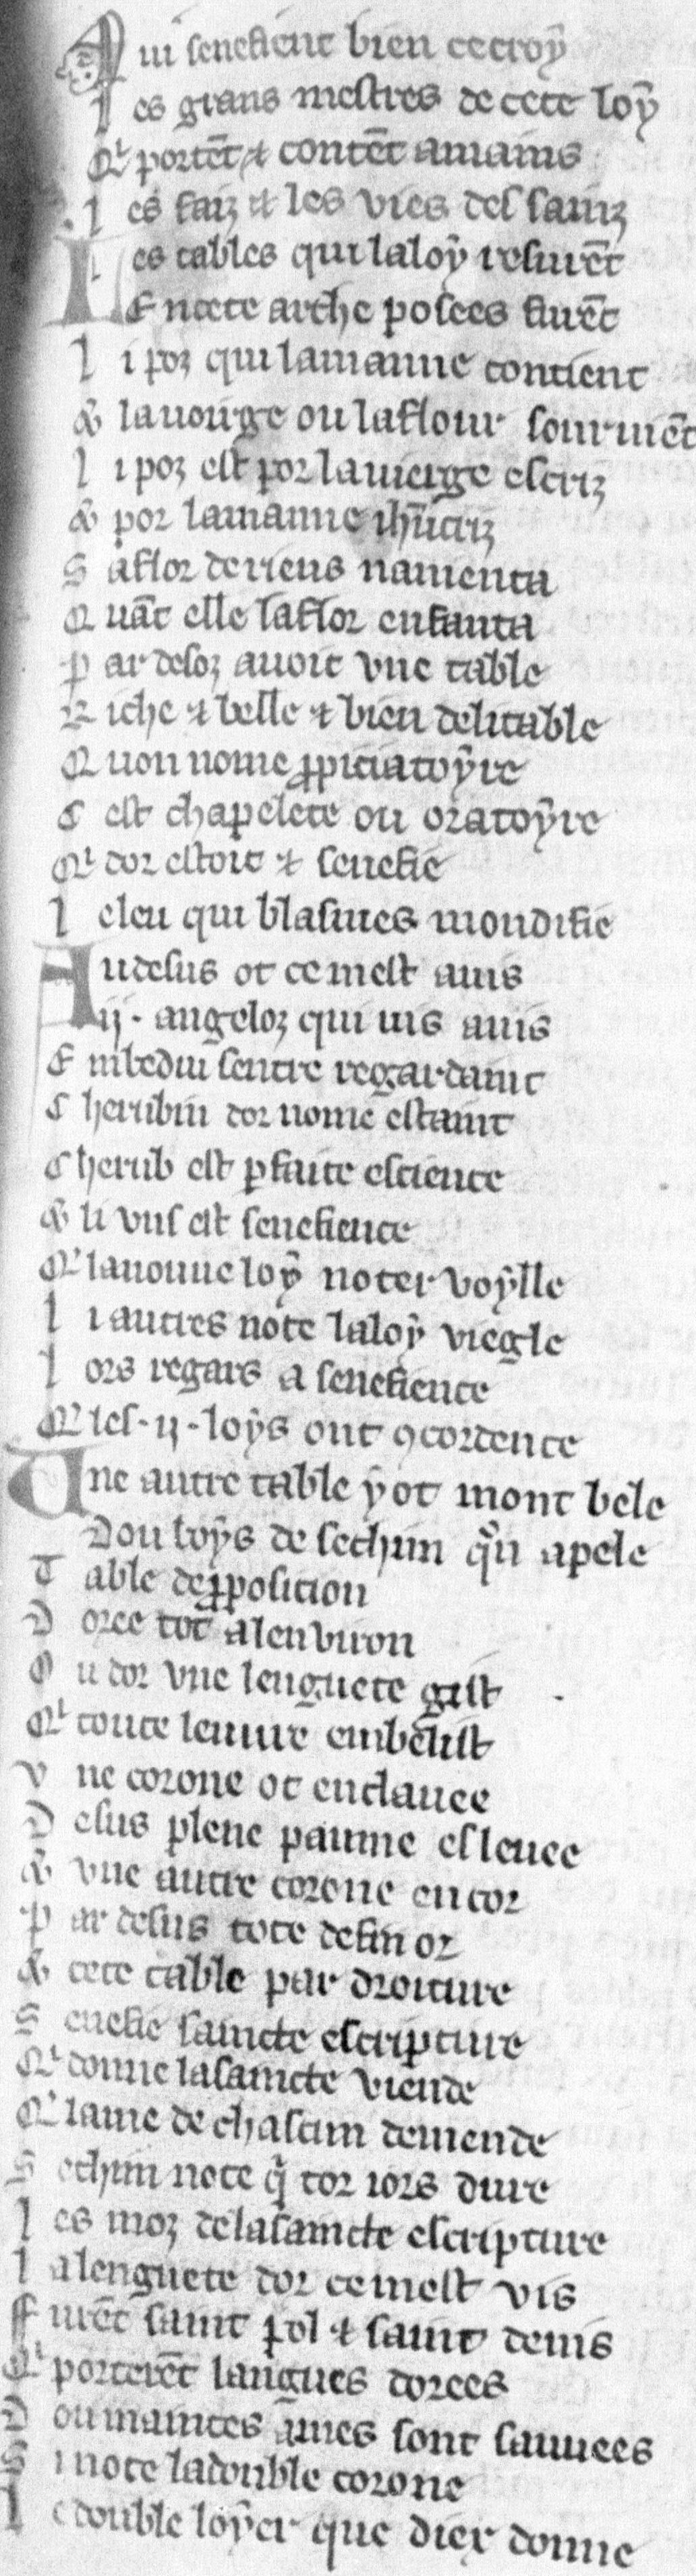 Qui senefient bien ce croÿ
Les grans mestres de cete loÿ
Qi portēt ⁊ contēt amains
Les faiz ⁊ les vies des sainz
Les tables qui la loÿ resurēt
En cete arche posees furēt
Li poz qui la manne contient
& la uerge ou la flour souruiēt
Li poz est por la uierge escriz
& por la manne ihūcriz
Sa flor de riens namenta
Quāt elle la flor enfanta
Par desoz auoit vne table
Riche ⁊ belle ⁊ bien delitable
Quon nome ꝓpiciatoÿre
Cest chapelete ou oratoÿre
Qi dor estoit ⁊ senefie
Celeu qui blasmes mondifie
Au desus ot ce mest auis
.ij. angeloz qui uis auis
Embedui sentre regardaint
Cherubin dor nome estaint
Cherub est ꝑfaite escience
& li vns est senefience
Qi la nouue loÿ noter voÿlle
Li autres note la loÿ viegle
Lors regars a senefience
Qi les .ij. loÿs ont ꝯcordence
Une autre table ÿ ot mont bele
Dou boÿs de sechim qūn apele
Table de ꝓposicion
Doree tot alenuiron
Ou dor vne lenguete gist
Qi toute leuure embelist
Vne corone ot enclauee
Desus plene paume esleuee
& vne autre corone encor
Par desus tote de fin or
& cete table par droiture
Senefie saincte escripture
Qi donne la saincte viende
Qi lame de chascun demende
Sechim note q̄ toz iors dure
Les moz de la saincte escripture
La lenguete dor ce mest vis
Furēt saint pol ⁊ saint denis
Qi porterēt langues dorees
Dou maintes āmes sont sauuees
Si note la double corone
Le double loÿer que diex donne